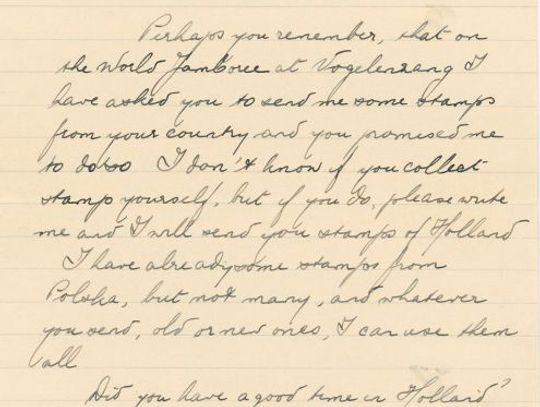 Perhaps you remember, that on
the World Jamboree at Vogelenzang I
have asked you to send me some stamps
from your country and you promised me
to do so I don't know if you collect
stamp yourself, but if you do, please write
me and I will send you stamps of Holland
I have already some stamps from
Polska, but not many, and whatever
you send, old or new ones, I can use them
all
Did you have a good time in Holland?